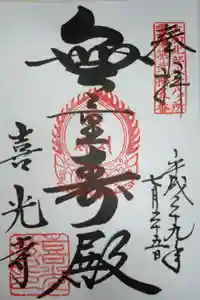 奉拝
無量寿殿
平成二十九年
七月二十五日
喜光寺